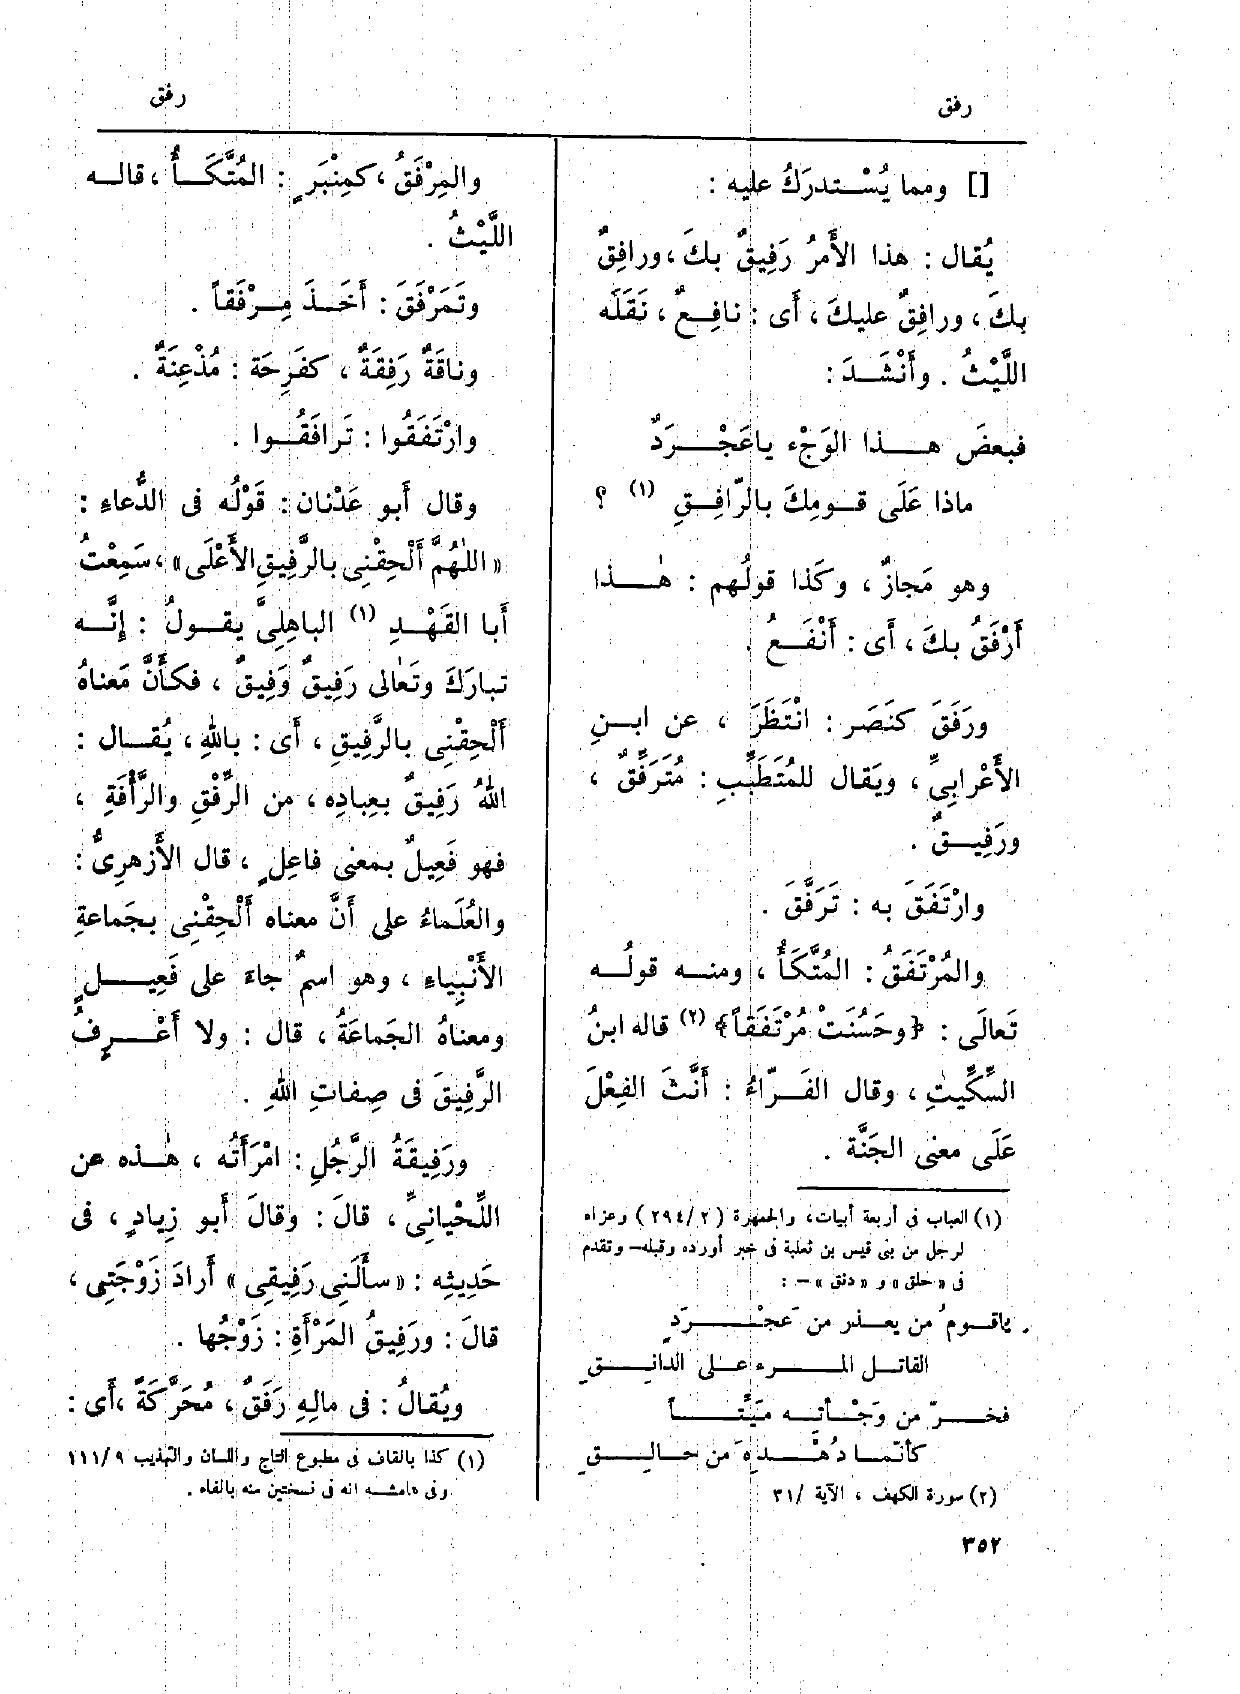 رفق
رفق
[] ومما يُسْتدرَكُ عليه :
يُقال : هذا الأَمرُ رَفِيقٌ بكَ ، ورافِقٌ
بكَ ، ورافِقٌ عليكَ ، أَى : نافِعٌ ، نَقَلَه
اللَّيْثُ . وأَنْشَدَ :
فبعضَ هذا الوَجْءِ ياعَجْرَدٌ
ماذا عَلَى قومِكَ بالرّافِقِ (١) ؟
وهو مَجازٌ ، وكَذا قولُهم : هٰذا
أَرْفَقُ بكَ ، أَى : أَنْفَعُ .
ورَفَقَ كنَصَر : انْتَظَرَ ، عن ابنِ
الأَعْرابِىِّ ، ويَقال للمُتَطَبِّبِ : مُتَرَفِّقٌ ،
ورَفِيقٌ .
وارْتَفَقَ به : تَرَفَّقَ .
والمُرْتَفَقُ : المُتَّكَأُ ، ومنه قولُه
تَعالَى : ﴿وحَسُنَتْ مُرْتَفَقاً﴾ (٢) قاله ابنُ
السِّكِّيتِ ، وقال الفَرّاءُ : أَنَّثَ الفِعْلَ
عَلَى معنى الجَنَّة .
(١) العباب فى أربعة أبيات، والجمهرة (٢/ ٢٩٤) وعزاه
لرجل من بنى قيس بن ثعلبة فى خبر أورده وقبله– وتقدم
فى «حلق» و «دنق» – :
ياقومُ من يعذر من عَجْرَدٍ
القاتل المرء على الدانِقِ
فخرّ من وَجْأته ميّتًا
كأنّما دُهْدِهَ من حالِقِ
(٢) سورة الكهف ، الآية /٣١
٣٥٢
والمِرْفَقُ ، كمِنْبَرٍ : المُتَّكَأُ ، قاله
اللَّيْثُ .
وتَمَرْفَقَ : أَخَذَ مِرْفَقاً .
وناقَةٌ رَفِقَةٌ ، كفَرِحَة : مُذْعِنَةٌ .
وارْتَفَقُوا : تَرافَقُوا .
وقال أَبو عَدْنان : قَوْلُه فى الدُّعاءِ :
«اللّٰهُمَّ أَلْحِقْنِى بالرَّفِيقِ الأَعْلَى» ، سَمِعْتُ
أَبا القَهْدِ (١) الباهِلِىَّ يقولُ : إِنَّه
تبارَكَ وتَعٰالى رَفِيقٌ وَفِيقٌ ، فكأَنَّ مَعناهُ
أَلْحِقْنِى بالرَّفِيقِ ، أَى : باللهِ ، يُقال :
اللهُ رَفِيقٌ بعِبادِه ، من الرِّفْقِ والرَّأْفَةِ ،
فهو فَعِيلٌ بمعنى فاعِلٍ ، قال الأَزهرِىُّ :
والعُلَماءُ على أَنَّ معناه أَلْحِقْنِى بجَماعةِ
الأَنْبِياءِ ، وهو اسمٌ جاءَ على فَعِيلٍ
ومعناهُ الجَماعَةُ ، قال : ولا أَعْرِفُ
الرَّفِيقَ فى صِفاتِ اللهِ .
ورَفِيقَةُ الرَّجُلِ : امْرَأَتُه ، هٰذه عن
اللِّحْيانِىِّ ، قالَ : وقالَ أَبو زِيادٍ ، فى
حَدِيثِه : «سأَلَنِى رَفِيقِى» أَرادَ زَوْجَتِى ،
قالَ : ورَفِيقُ المَرْأَةِ : زَوْجُها .
ويُقالُ : فى مالِهِ رَفَقٌ ، مُحَرَّكَةً ، أَى :
(١) كذا بالقاف فى مطبوع التاج واللسان والتهذيب ١١١/٩
وفى هامشه انه فى نسختين منه بالفاء .